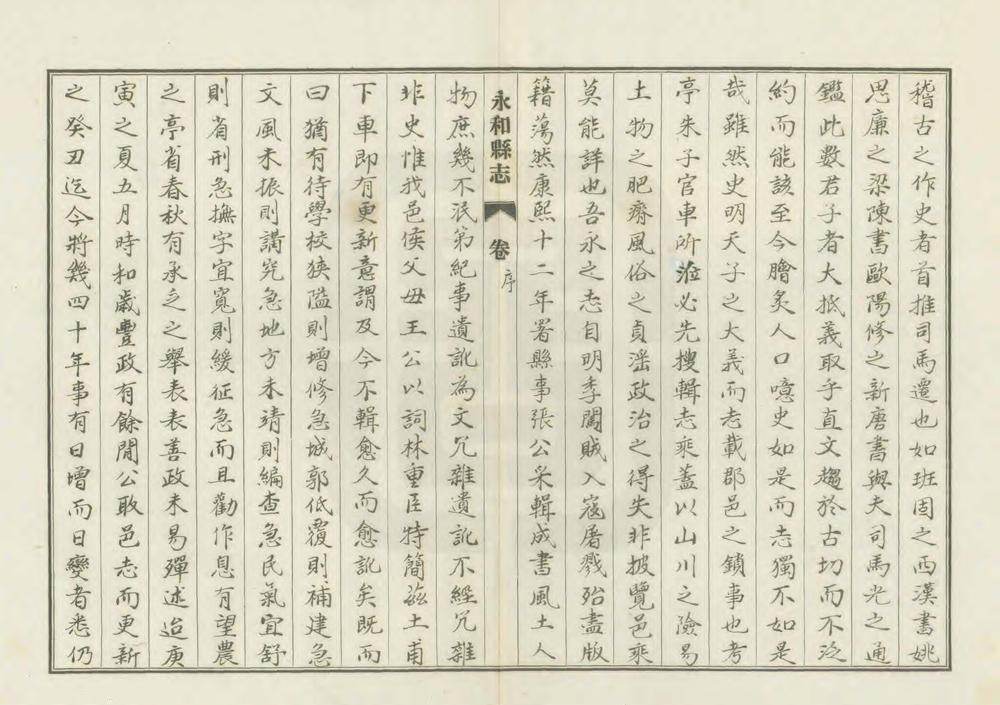 稽古之作史者首推司馬遷也如班固之西漢書姚
思廉之梁陳書歐陽修之新唐書與夫司馬光之通
鑑此數君子者大抵義取乎直文趨於古切而不泛
約而能該至今膾炙人口噫史如是而志獨不如是
哉雖然史明天子之大義而志載郡邑之鎖事也考
亭朱子官車所涖必先搜輯志乘蓋以山川之險易
土物之肥瘠風俗之貞滛政治之得失非披覽邑乘
莫能詳也吾永之志自明季闖賊入寇屠戮殆盡版
籍蕩然康熙十二年署縣事張公采輯成書風土人
永和縣志 卷 序
物庶幾不泯第紀事遺訛為文冗雜遺訛不經冗雜
非史惟我邑侯父母王公以詞林重臣特簡茲土甫
下車即有更新意謂及今不輯愈久而愈訛矣既而
曰猶有待學校狹隘則增修急城郭低覆則補建急
文風未振則講究急地方未靖則編查急民氣宜舒
則省刑急撫字宜寬則緩征急而且勸作息有望農
之亭省春秋有承之之舉表表善政未易殫述迨庚
寅之夏五月時和歲豐政有餘閒公取邑志而更新
之癸丑迄今將幾四十年事有日增而日變者悉仍